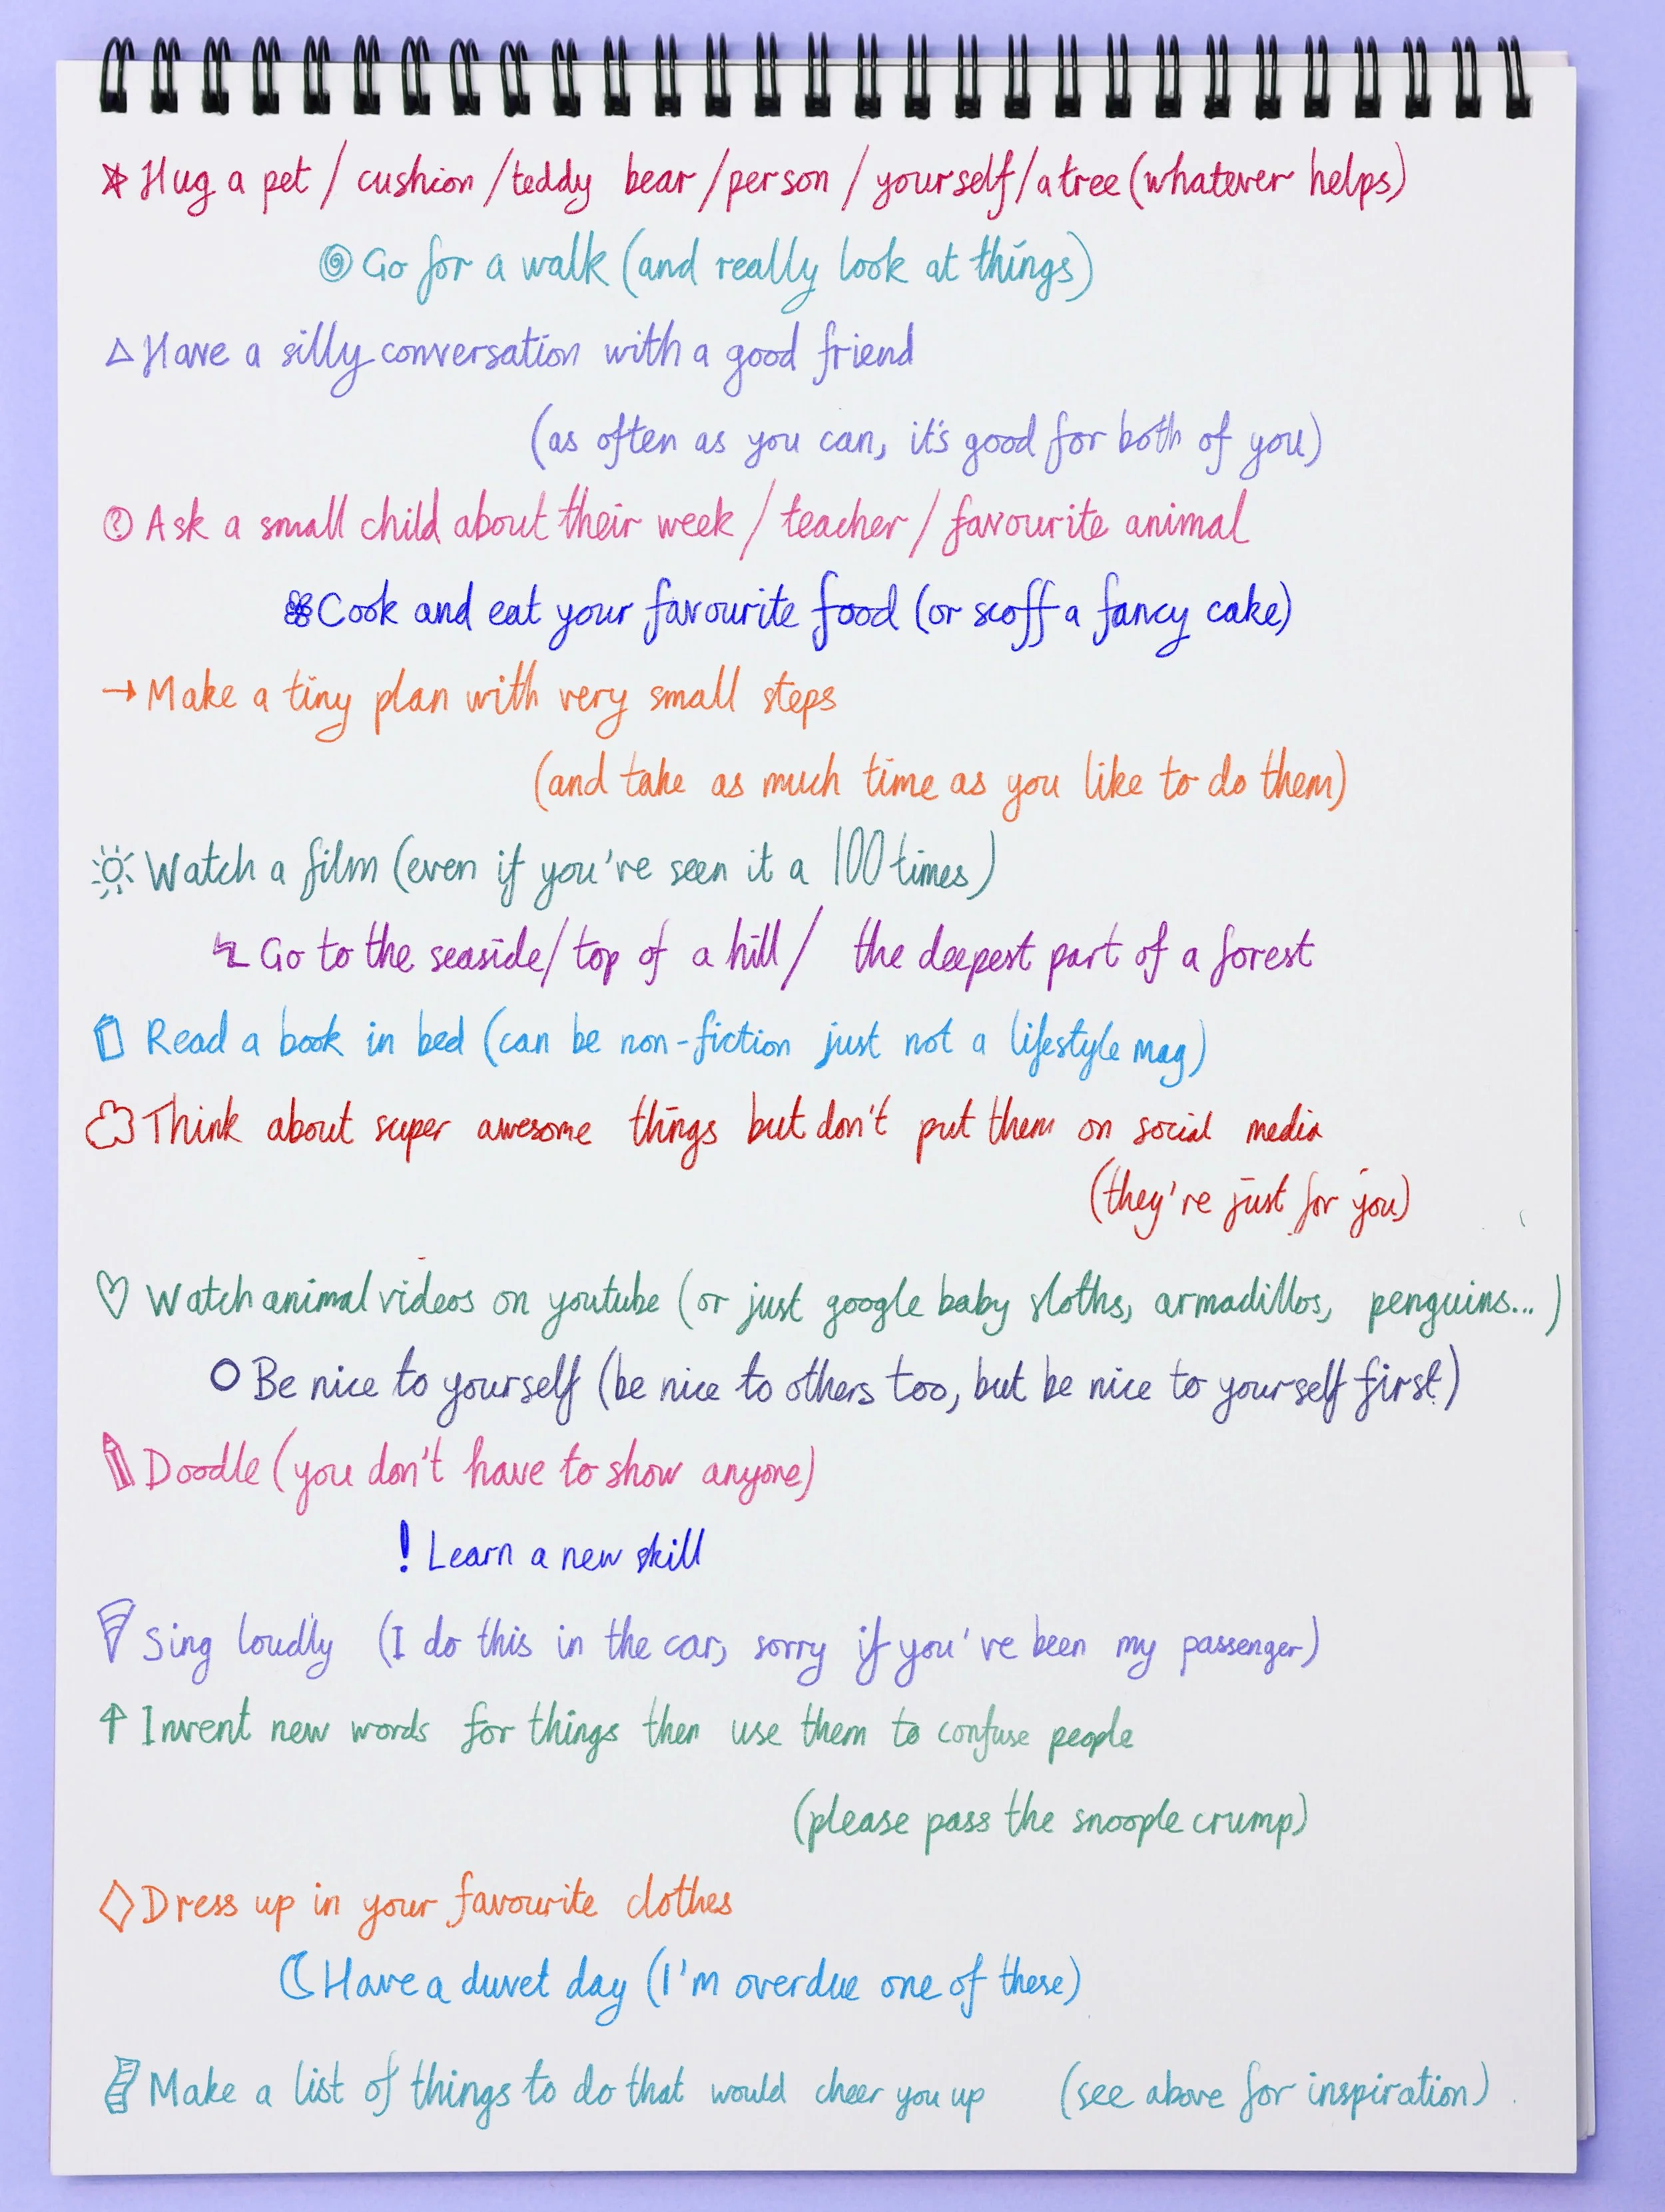 Hug a pet / cushion / teddy bear / person / yourself / a tree (whatever helps)
Go for a walk (and really look at things)
Have a silly conversation with a good friend
(as often as you can, it's good for both of you)
Ask a small child about their week / teacher / favourite animal
Cook and eat your favourite food (or scoff a fancy cake)
→ Make a tiny plan with very small steps
(and take as much time as you like to do them)
Watch a film (even if you've seen it a 100 times)
Go to the seaside / top of a hill / the deepest part of a forest
Read a book in bed (can be non-fiction just not a lifestyle mag)
Think about super awesome things but don't put them on social media
(they're just for you)
Watch animal videos on youtube (or just google baby sloths, armadillos, penguins...)
Be nice to yourself (be nice to others too, but be nice to yourself first)
Doodle (you don't have to show anyone)
! Learn a new skill
Sing loudly (I do this in the car, sorry if you've been my passenger)
↑ Invent new words for things then use them to confuse people
(please pass the snoople crump)
Dress up in your favourite clothes
Have a duvet day (I'm overdue one of these)
Make a list of things to do that would cheer you up (see above for inspiration)